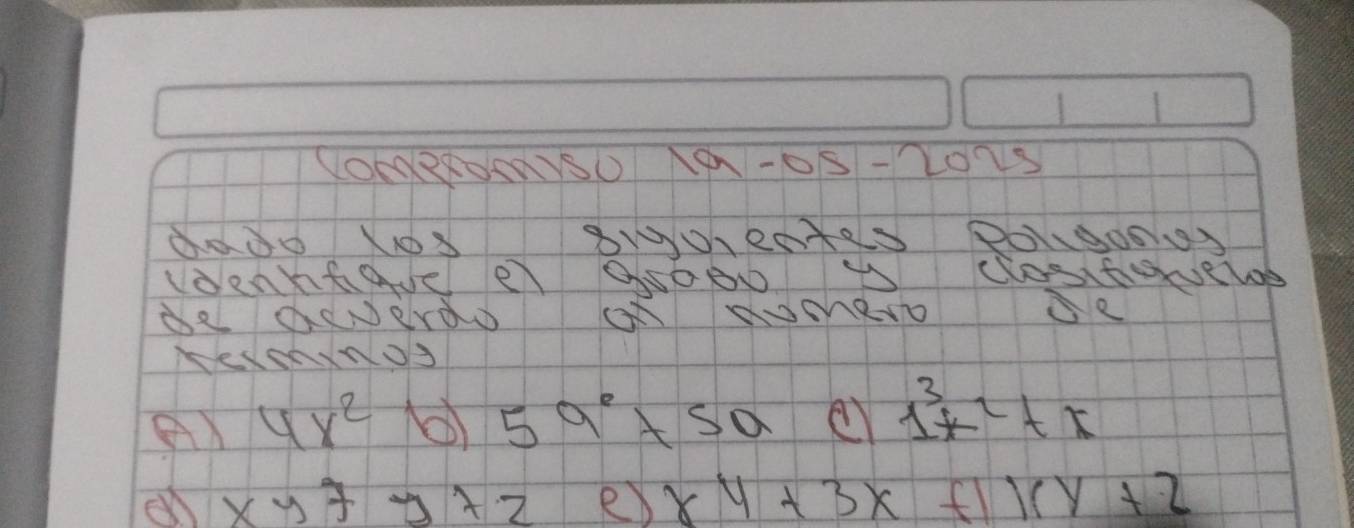 Compromiso 19-05-2025
dado los siguientes Poligonos
identifique el grado y clasifiquelos
de acuerdo al numero de
terminos
a) 4x² b) 5a² + 5a c) 1x² + x
d) xy + y + z e) x4 + 3x f) xy + 2